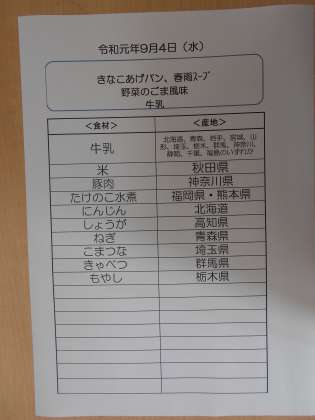 令和元年9月4日（水）
きなこあげパン、春雨ｽｰﾌﾟ
野菜のごま風味
牛乳
＜食材＞ ＜産地＞
牛乳 北海道、青森、岩手、宮城、山形、埼玉、栃木、群馬、神奈川、静岡、千葉、福島のいずれか
米 秋田県
豚肉 神奈川県
たけのこ水煮 福岡県・熊本県
にんじん 北海道
しょうが 高知県
ねぎ 青森県
こまつな 埼玉県
きゃべつ 群馬県
もやし 栃木県